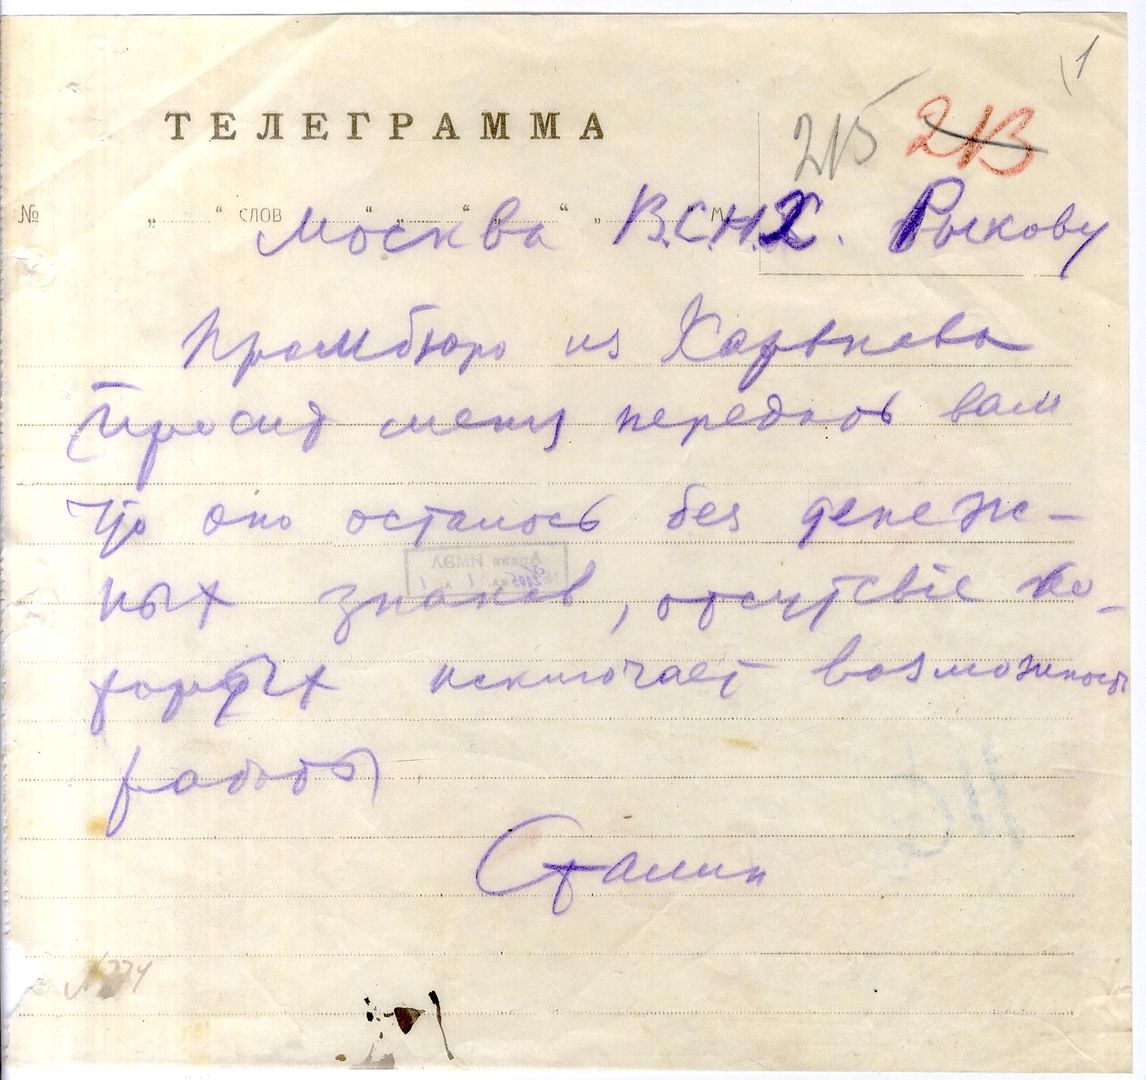 1
ТЕЛЕГРАММА
215 213
№ „ “ слов “ „ “ „ “ „ “ м
Москва В.С.Н.Х. Рыкову
Промбюро из Харькова
просит меня передать вам
что оно осталось без денеж-
ных знаков, отсутствие ко-
торых исключает возможность
работы
Сталин
№ 274